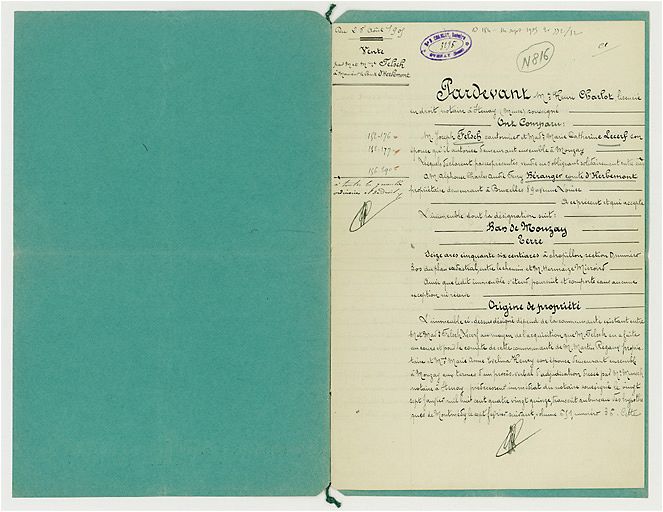 Du 25 Août 1905
Vente
par M et Mme Felsch
à Monsieur le Comte d'Herbemont
N 816
Pardevant Me Henri Charlot licencié
en droit, notaire à Stenay (Meuse) soussigné
Ont Comparu:
M. Joseph Felsch cantonnier et Made Marie Catherine Lecerf son
épouse qu'il autorise demeurant ensemble à Mouzay
Lesquels déclarent par ces présentes vendre en s'obligeant solidairement entre eux
A M. Alphonse Charles André Bérenger comte d'Herbemont
propriétaire demeurant à Bruxelles avenue Louise
A ce présent et qui accepte
L'immeuble dont la désignation suit:
Ban de Mouzay
Terre
Seize ares cinquante six centiares à chapillon section D, numéro
du plan cadastral, entre le chemin et M.
Ainsi que ledit immeuble s'étend poursuit et comporte sans aucune
exception ni réserve
Origine de propriété
L'immeuble ci-dessus désigné dépend de la communauté existant entre
M et Made Felsch Lecerf au moyen de l'acquisition que M. Felsch en a faite
au cours et pour le compte de cette communauté de M. Martin proprié
taire et Me Marie Anne Evelina Henry son épouse demeurant ensemble
à Mouzay aux termes d'un procès verbal d'adjudication dressé par Me
notaire à Stenay prédécesseur immédiat du notaire soussigné le vingt
sept janvier mil huit cent quatre vingt quinze, transcrit au bureau des hypothè
ques de Montmédy le sept février suivant, volume numéro 36. Cette